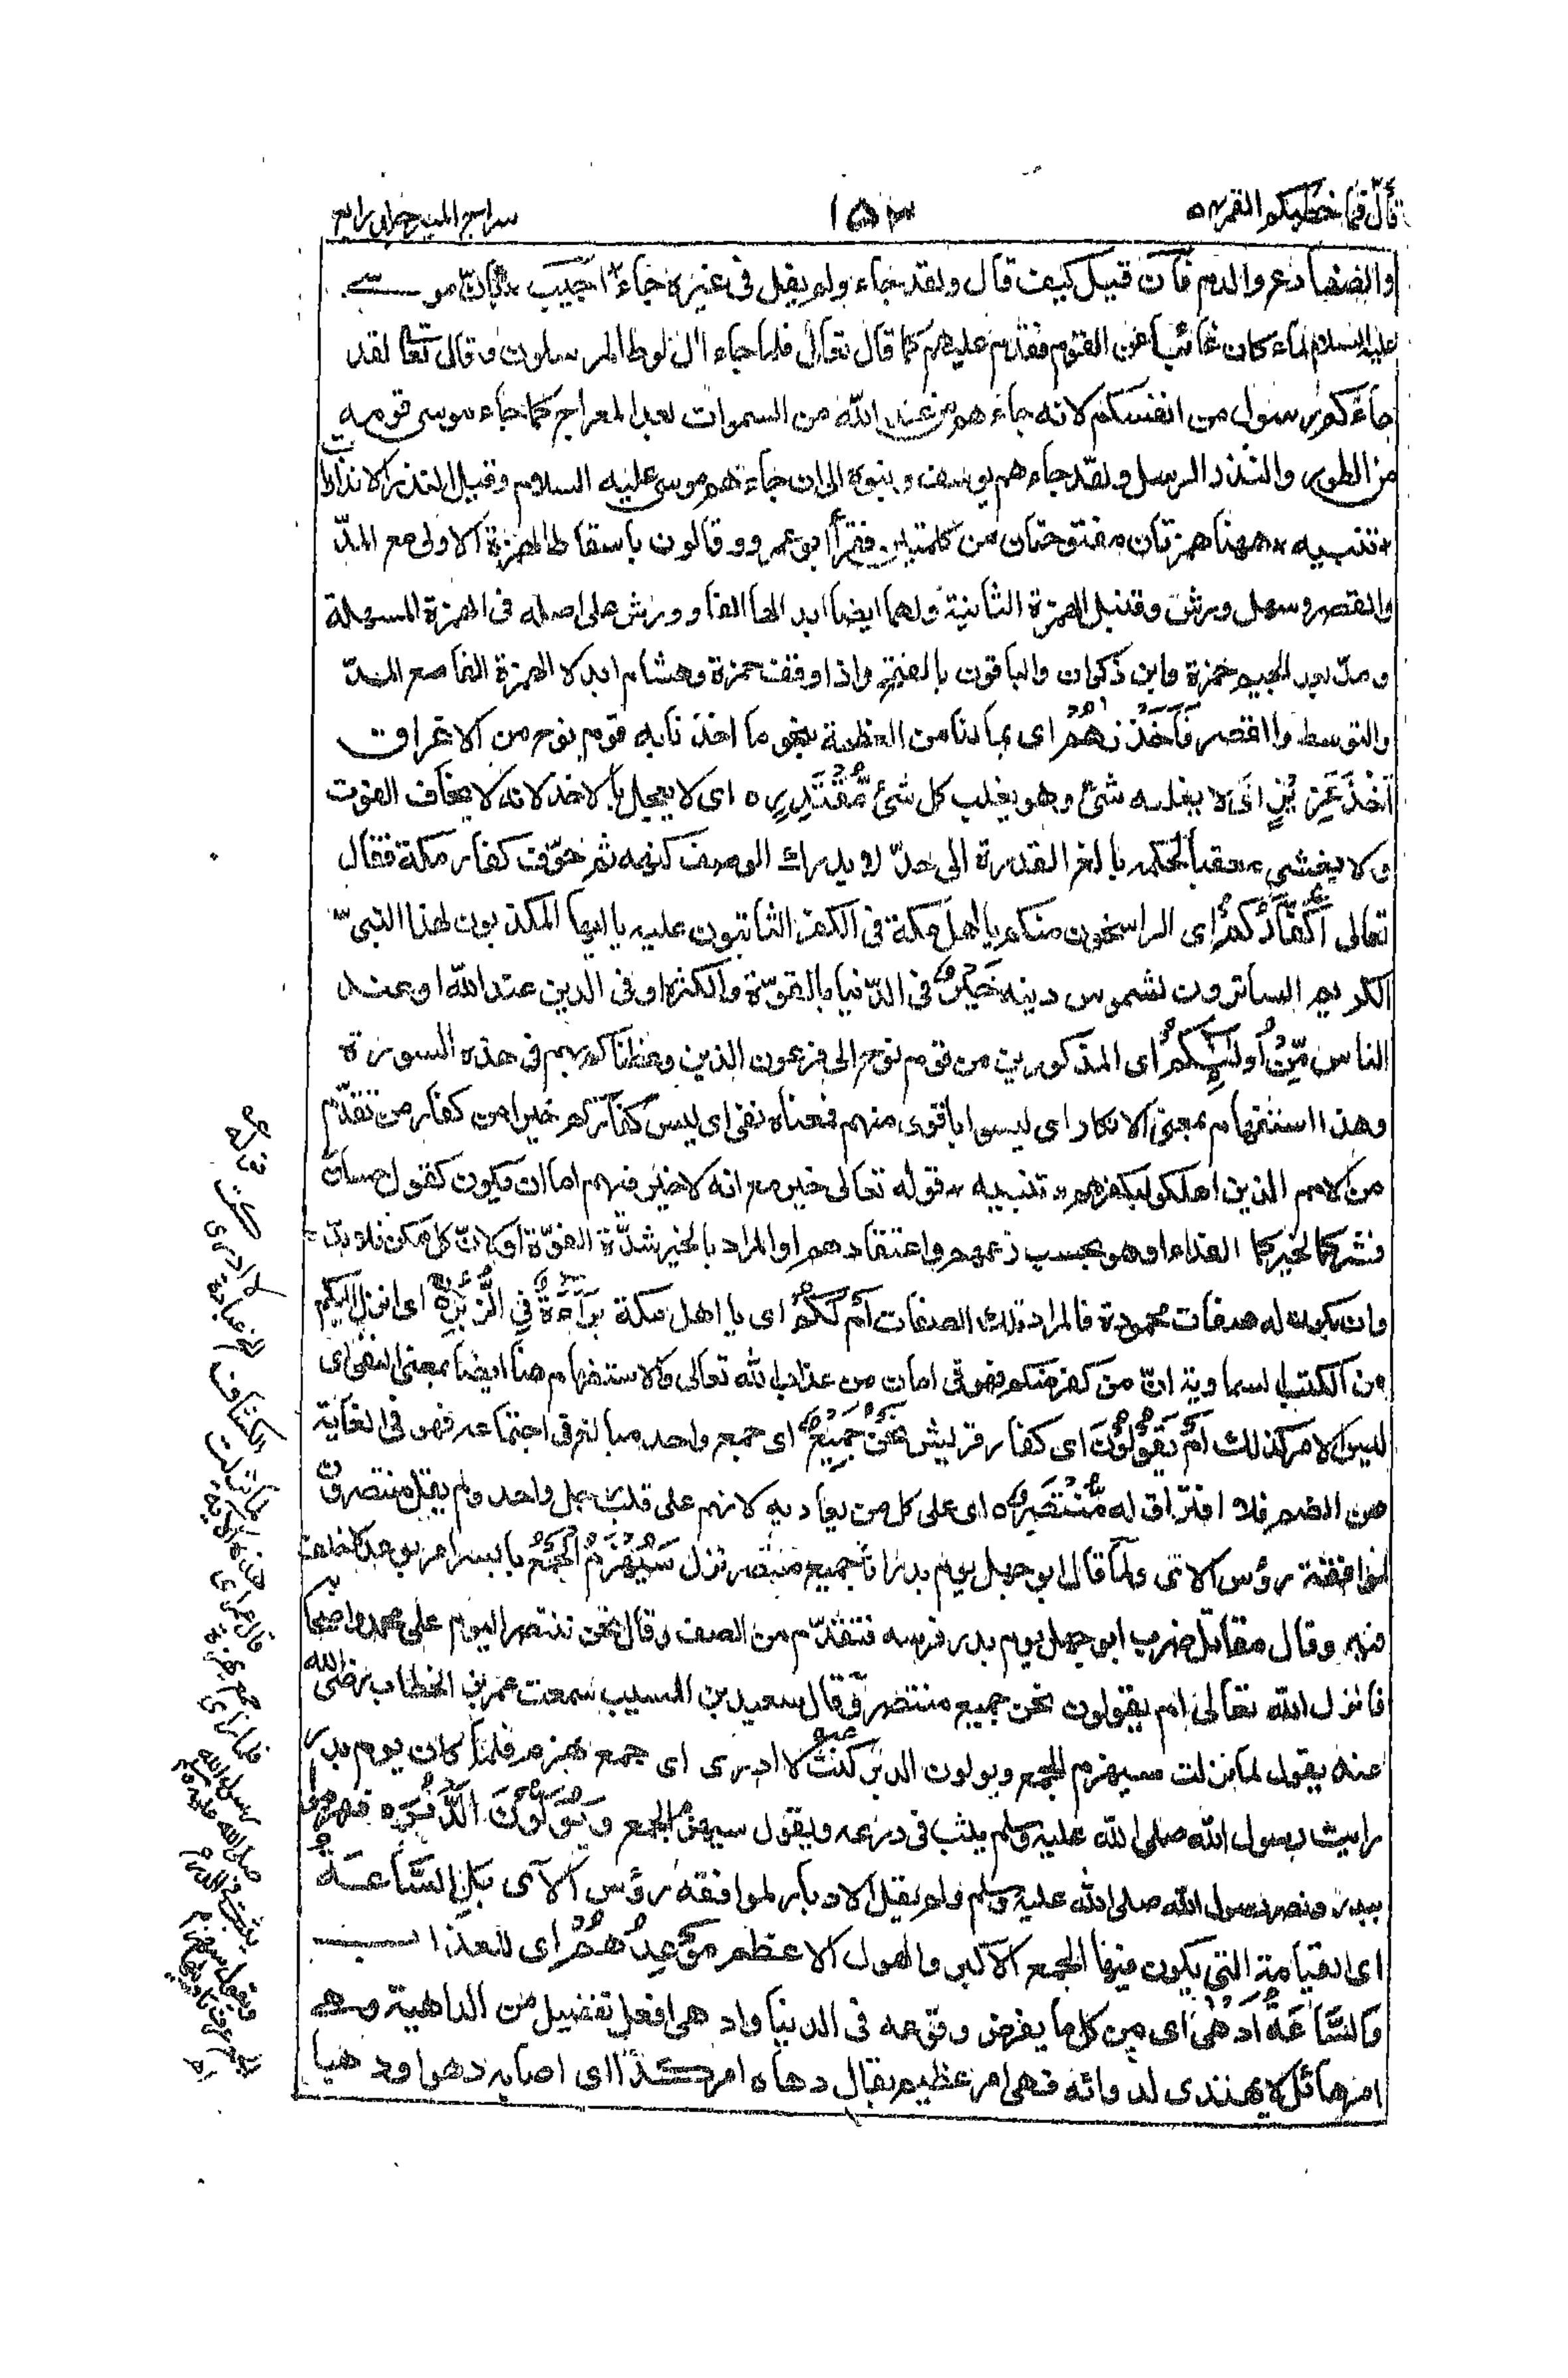 قال فما خطبكم القمر ٥٤
١٥٢
سراج المنير جلد رابع
والضفادع والدم فان قيل كيف قال ولقد جاء ولم يقل فى غيره جاء اجيب بان موسى
عليه السلام لما كان غائبا عن القوم فقدم عليهم كما قال تعالى فلما جاء ال لوط المرسلون وقال تعالى لقد
جاءكم رسول من انفسكم لانه جاءهم من عند الله من السموات بعد المعراج كما جاء موسى قومه
من الطور والنذر الرسل ولقد جاءهم يوسف وبنوه الى ان جاءهم موسى عليه السلام وقيل النذر الانذارات
* تنبيه * ههنا همزتان مفتوحتان من كلمتين فقرأ ابو عمرو وقالون باسقاط الهمزة الاولى مع المدّ
والقصر وسهل ورش وقنبل الهمزة الثانية ولهما ايضا ابدالها الفا وورش على اصله فى الهمزة المسهلة
ومدّ بعد الجيم حمزة وابن ذكوان والباقون بالفتح واذا وقف حمزة وهشام ابدلا الهمزة الفا مع المدّ
والتوسط والقصر فَاَخَذْنٰهُمْ اى بما لنا من العظمة بنحو ما اخذنا به قوم نوح من الاغراق
اَخْذَ عَزِيْزٍ اى لا يغلبه شئ وهو يغلب كل شئ مُّقْتَدِرٍ ٥ اى لا يعجل بالاخذ لانه لا يخاف الفوت
ولا يخشى معقبا لحكمه بالغ القدرة الى حدّ لا يدرك الوصف كنهه ثم خوّف كفار مكة فقال
تعالى اَكُفَّارُكُمْ اى الراسخون منكم يا اهل مكة فى الكفر الثابتون عليه يا ايها المكذبون لهذا النبىّ
الكريم الساترون لشموس دينه خَيْرٌ فى الدّنيا بالقوّة والكثرة او فى الدين عند الله او عند
الناس مِّنْ اُولٰٓئِكُمْ اى المذكورين من قوم نوح الى فرعون الذين وعظناكم بهم فى هذه السورة
وهذا استفهام بمعنى الانكار اى ليسوا باقوى منهم فمعناه نفى اى ليس كفاركم خيرا من كفار من تقدّم
من الامم الذين اهلكوا بكفرهم * تنبيه * قوله تعالى خير مع انه لا خير فيهم اما ان يكون كقول حسان
فشركما لخيركما الفداء او هو بحسب زعمهم واعتقادهم او المراد بالخير شدّة القوّة او لانّ كل ممكن فلا بدّ
وان يكون له صفات محمودة فالمراد تلك الصفات اَمْ لَكُمْ اى يا اهل مكة بَرَآءَةٌ فِى الزُّبُرِ ٥ اى انزل اليكم
من الكتب السماوية انّ من كفر منكم فهو فى امان من عذاب الله تعالى فالاستفهام هنا ايضا بمعنى النفى اى
ليس الامر كذلك اَمْ يَقُوْلُوْنَ اى كفار قريش نَحْنُ جَمِيْعٌ اى جمع واحد مبالغ فى اجتماعه فهو فى الغاية
من الضم فلا افتراق له مُّنْتَصِرٌ ٥ اى على كل من يعاديه لانهم على قلب رجل واحد ولم يقل منتصرون
لموافقة رؤس الآى ولما قال ابو جهل يوم بدر انا جميع منتصر نزل سَيُهْزَمُ الْجَمْعُ بايسر امر بوعد لا خلف
فيه وقال مقاتل ضرب ابو جهل يوم بدر فرسه فتقدّم من الصف وقال نحن ننتصر اليوم على محمد واصحابه
فانزل الله تعالى ام يقولون نحن جميع منتصر قال سعيد بن المسيب سمعت عمر بن الخطاب رضى الله
عنه يقول لما نزلت سيهزم الجمع ويولون الدبر كنت لا ادرى اى جمع يهزم فلما كان يوم بدر
رايت رسول الله صلى الله عليه وسلم يثب فى درعه ويقول سيهزم الجمع وَيُوَلُّوْنَ الدُّبُرَ ٥ فهزموا
ببدر ونصر رسول الله صلى الله عليه وسلم ولم يقل الادبار لموافقة رؤس الآى بَلِ السَّاعَةُ
اى القيامة التى يكون فيها الجمع الاكبر والهول الاعظم مَوْعِدُهُمْ اى للعذاب
وَالسَّاعَةُ اَدْهٰى اى من كل ما يفرض وقوعه فى الدنيا وادهى افعل تفضيل من الداهية وهى
امر هائل لا يهتدى لدوائه فهى امر عظيم يقال دهاه امر كذا اى اصابه دهوا ودهيا
قوله
كنت
لا ادرى
الخ عبارة
الكشاف
لما نزلت
هذه الآية
قال عمر اى
جمع يهزم
فلما راى
رسول الله
صلى الله عليه وسلم
يثب فى الدرع
ويقول سيهزم
الجمع عرف تاويلها
اه